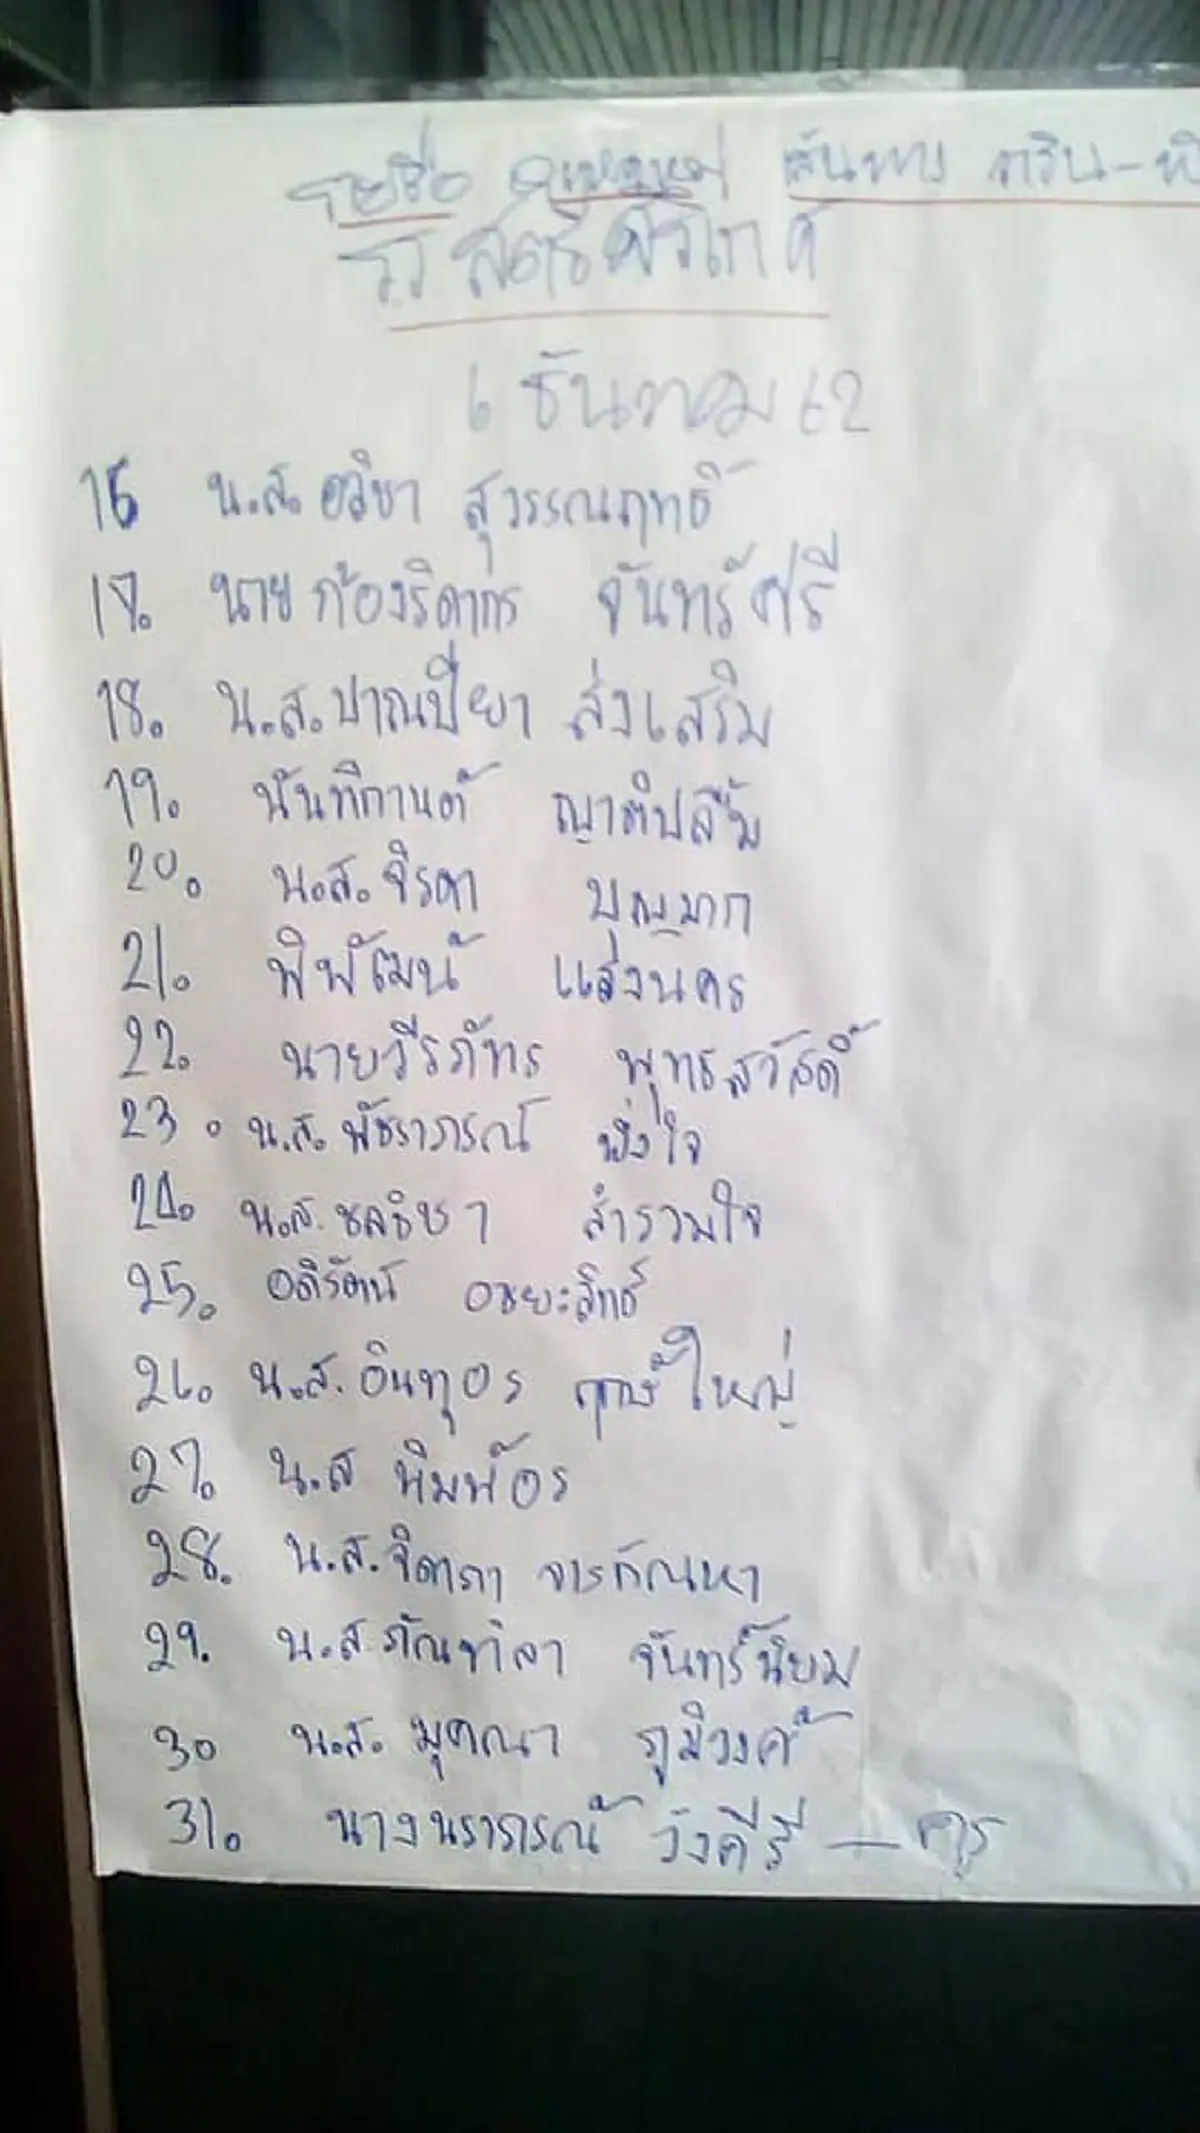 รายชื่อ เส้นทาง
ร.ร. สตรีสิริเกศ
6 ธันวาคม 62
16 น.ส. อริชา สุวรรณฤทธิ์
17. นาย ก้องธิดากร จันทร์ศรี
18. น.ส. ปาณปียา ส่งเสริม
19. นันทิกานต์ ญาติปลื้ม
20. น.ส. จิรดา บุญมาก
21. พิพัฒน์ แสงนคร
22. นายวีรภัทร พุทธสวัสดิ์
23. น.ส. พัชราภรณ์ พึ่งใจ
24. น.ส. ชลธิชา สำรวมใจ
25. อดิรัตน์ อชยะสิทธิ์
26. น.ส. อินทุอร ฤกษ์ใหญ่
27. น.ส พิมพ์อร
28. น.ส. จิดาภา จารกัณหา
29. น.ส. ภัณฑิลา จันทร์นิยม
30 น.ส. มุคณา ภูมิวงศ์
31. นางนราภรณ์ วังคีรี — ครู